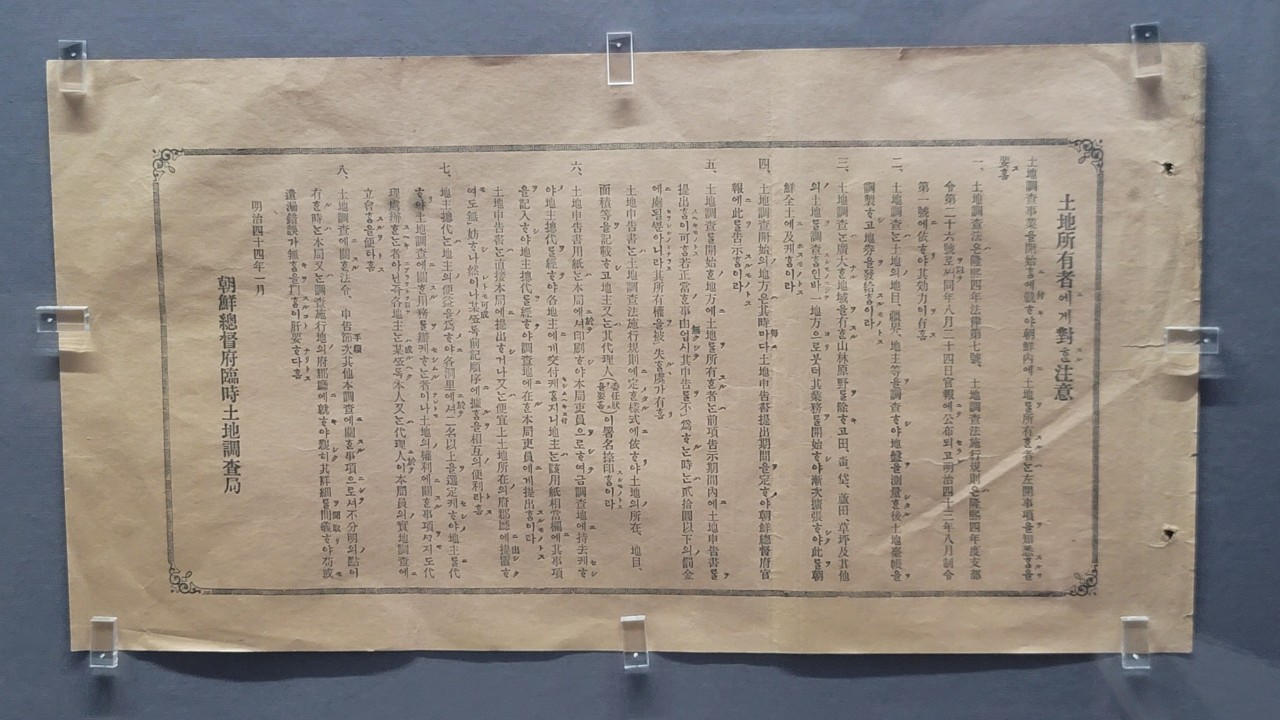 土地所有者에게對ᄒᆞᆫ注意
土地調査事業을開始ᄒᆞᆷ에際ᄒᆞ야朝鮮內에土地를所有ᄒᆞᆫ者ᄂᆞᆫ左開事項을知悉ᄒᆞᆷ을
要ᄒᆞᆷ
一、土地調査法은隆熙四年法律第七號、土地調査法施行規則은隆熙四年度支部
令第二十六號로ᄡᅥ同年八月二十四日官報에公布되고明治四十三年八月制令
第一號에依ᄒᆞ야其効力이有ᄒᆞᆷ
二、土地調査ᄂᆞᆫ土地의地目、疆界、地主等을調査ᄒᆞ야地盤을測量ᄒᆞᆫ後土地臺帳을
調製ᄒᆞ고地券을發給ᄒᆞᆷ이라
三、土地調査ᄂᆞᆫ廣大ᄒᆞᆫ地域을有ᄒᆞᆫ山林原野를除ᄒᆞ고田、畓、垈、蘆田、草坪及其他
의土地를調査ᄒᆞᆷ인바一地方으로붓터其業務를開始ᄒᆞ야漸次擴張ᄒᆞ야此를朝
鮮全土에及케ᄒᆞᆷ이라
四、土地調査開始의地方은其時마다土地申告書提出期間을定ᄒᆞ야朝鮮總督府官
報에此를告示ᄒᆞᆷ이라
五、土地調査를開始ᄒᆞᆫ地方에土地를所有ᄒᆞᆫ者ᄂᆞᆫ前項告示期間內에土地申告書를
提出ᄒᆞᆷ이可ᄒᆞᆷ若正當ᄒᆞᆫ事由업시其申告를不爲ᄒᆞᆫ時ᄂᆞᆫ貳拾圜以下의罰金
에處ᄒᆞᆯᄲᅮᆫ아니라其所有權을被失ᄒᆞᆯ虞가有ᄒᆞᆷ
土地申告書ᄂᆞᆫ土地調査法施行規則에定ᄒᆞᆫ樣式에依ᄒᆞ야土地의所在、地目、
面積等을記載ᄒᆞ고地主又ᄂᆞᆫ其代理人(委任狀을要ᄒᆞᆷ)이署名捺印ᄒᆞᆷ이라
六、土地申告書用紙ᄂᆞᆫ本局에셔印刷ᄒᆞ야本局吏員으로ᄒᆞ여금調査地에持去케ᄒᆞ
야地主總代를經ᄒᆞ야各地主에게交付케ᄒᆞ지니地主ᄂᆞᆫ該用紙相當欄에其事項
을記入ᄒᆞ야地主總代를經ᄒᆞ야調査地에在ᄒᆞᆫ本局吏員에게提出ᄒᆞᆷ이라
土地申告書ᄂᆞᆫ直接本局에提出ᄒᆞ거나又ᄂᆞᆫ便宜上土地所在의府郡廳에提置ᄒᆞ
여도無妨ᄒᆞ나然이나某됴록前記順序에據ᄒᆞᆷ을相互의便利라ᄒᆞᆷ
七、地主總代ᄂᆞᆫ地主의便益을爲ᄒᆞ야各洞里에셔二名以上을選定케ᄒᆞ야地主를代
ᄒᆞ야土地調査에關ᄒᆞᆫ用務를辦케ᄒᆞᄂᆞᆫ者이나土地의權利에關ᄒᆞᆫ事項ᄭᆞ지도代
理케辦ᄒᆞᄂᆞᆫ者가아닌즉各地主ᄂᆞᆫ某됴록本人又ᄂᆞᆫ代理人이本局員의實地調査에
立會ᄒᆞᆷ을便타ᄒᆞᆷ
八、土地調査에關ᄒᆞᆫ法令、申告節次其他本調査에關ᄒᆞᆫ事項으로셔不分明의點이
有ᄒᆞᆫ時ᄂᆞᆫ本局又ᄂᆞᆫ調査施行地의府郡廳에就ᄒᆞ야親히其詳細를問議ᄒᆞ야苟或
遺漏錯誤가無ᄒᆞᆷ을圖ᄒᆞᆷ이肝要ᄒᆞ다ᄒᆞᆷ
明治四十四年一月
朝鮮總督府臨時土地調査局